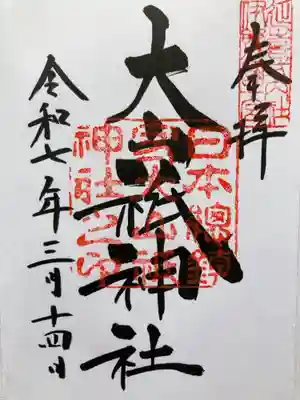 奉拝
大山祇神社
日本總鎮
守大山祇
神社之印
令和七年三月十四日